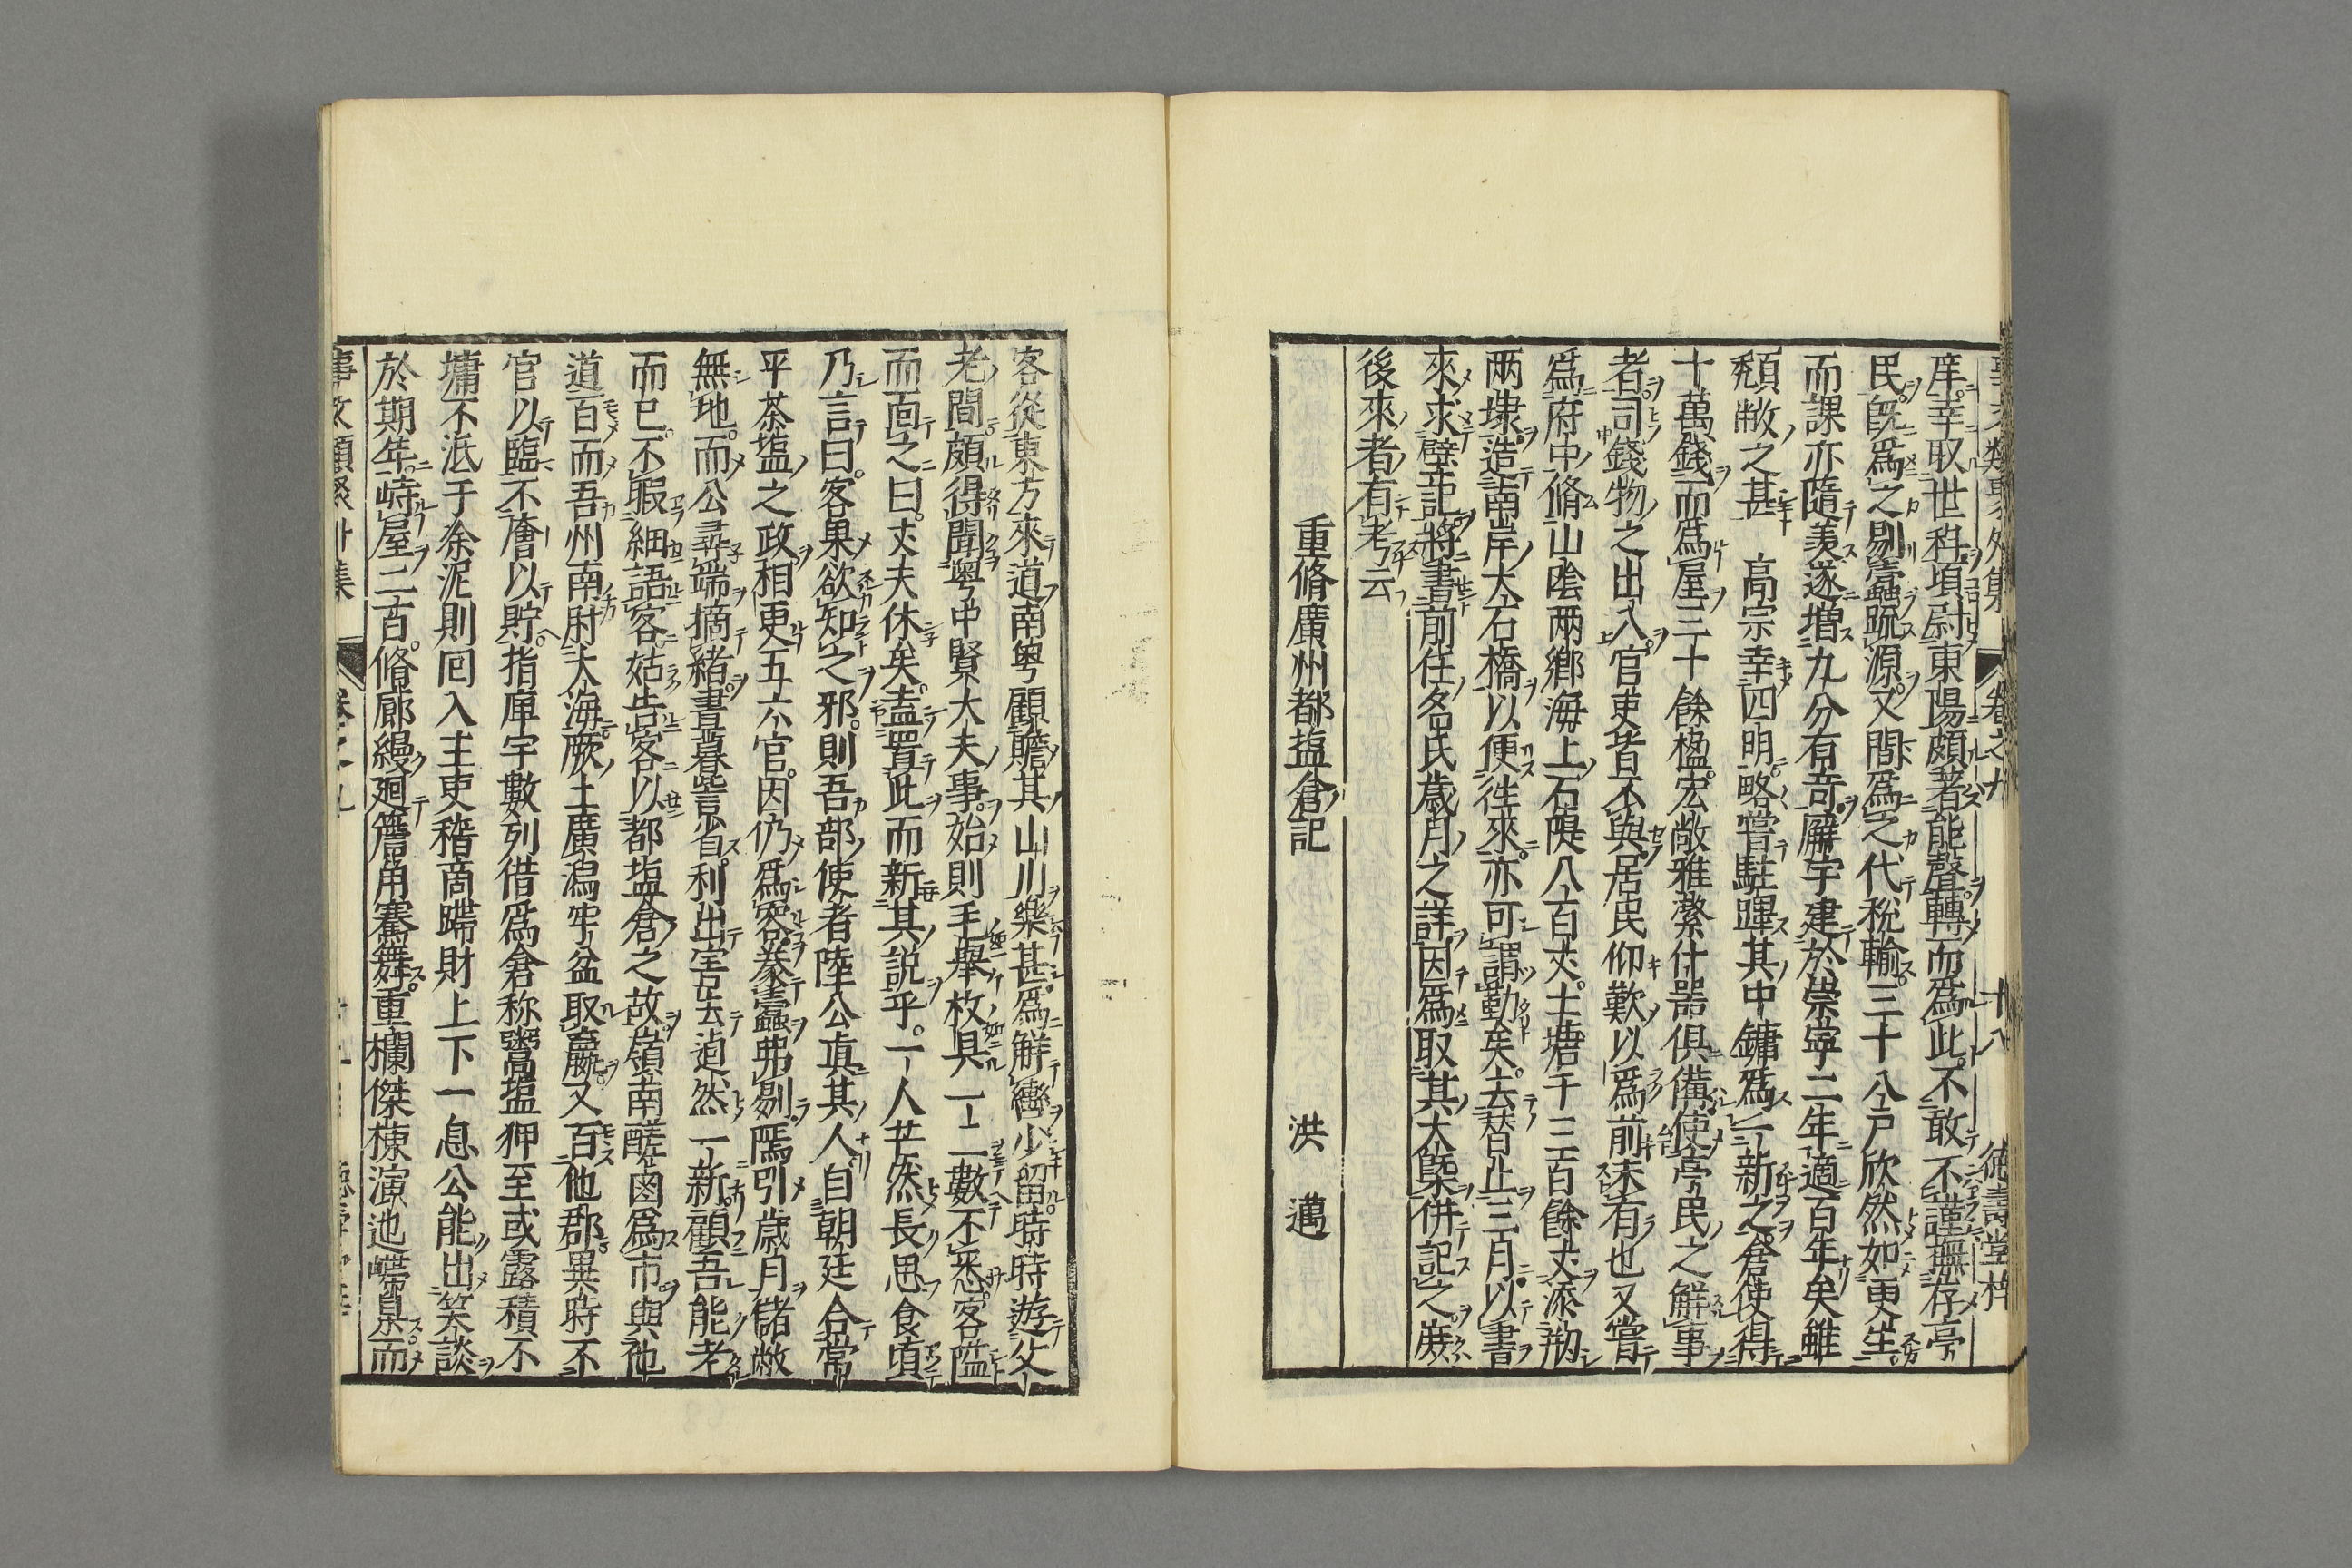 事文類聚外集 卷之九 十八 德壽堂梓
庠幸取世科頃尉東陽頗著能聲轉而爲此不敢不謹撫存亭
民旣爲之剔蠹疏源又間爲之代稅輸三十八戶欣然如更生
而課亦隨羨遂増九分有竒廨宇建於崇寧二年適百年矣雖
頽敝之甚 高宗幸四明略嘗駐蹕其中鏞爲一新之倉使得
十萬錢而爲屋三十餘楹宏敞雅潔什噐俱備使亭民之觧事
者司錢物之出入官吏皆不與居民仰歎以爲前未有也又嘗
爲府中脩山陰兩鄉海上石隄八百丈土塘千三百餘丈添剏
兩埭造南岸大石橋以便徃來亦可謂勤矣去替止三月以書
來求壁記將書前任名氏歳月之詳因爲取其大槩併記之庶
後來者有考云
重脩廣州都塩倉記 洪 邁
客從東方來道南粤顧瞻其山川樂甚爲觧轡少留時時遊父
老間頗得聞粤中賢大夫事始則毛舉枚具一二數不悉客隘
而靣之曰丈夫休矣盍置此而新其説乎一人芒然長思食頃
乃言曰客果欲知之邪則吾部使者陸公眞其人自朝廷合常
平茶塩之政相更五六官因仍爲容豢蠹弗剔隲引歳月儲敝
無地而公尋端摘緒晝暮訾省利出害去逌然一新顧吾能老
而已不暇細語客姑告客以都塩倉之故嶺南醝鹵爲市與他
道百而吾州南肘大海厥土廣潟牢盆取贏又百他郡異時不
官以臨不廥以貯指庫宇數列借爲倉称鬻塩狎至或露積不
墉不泜于余泥則囘入主吏稽商蹛財上下一息公能出笑談
於期年峙屋二百脩廊縵廻簷甬騫舞重欄傑棟演迆嵽臬而
事文類聚外集 卷之九